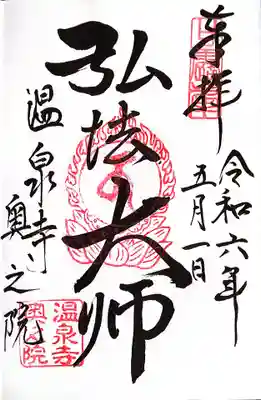 奉拝
令和六年
五月一日
弘法大师
温泉寺奥之院
温泉寺
奥之院